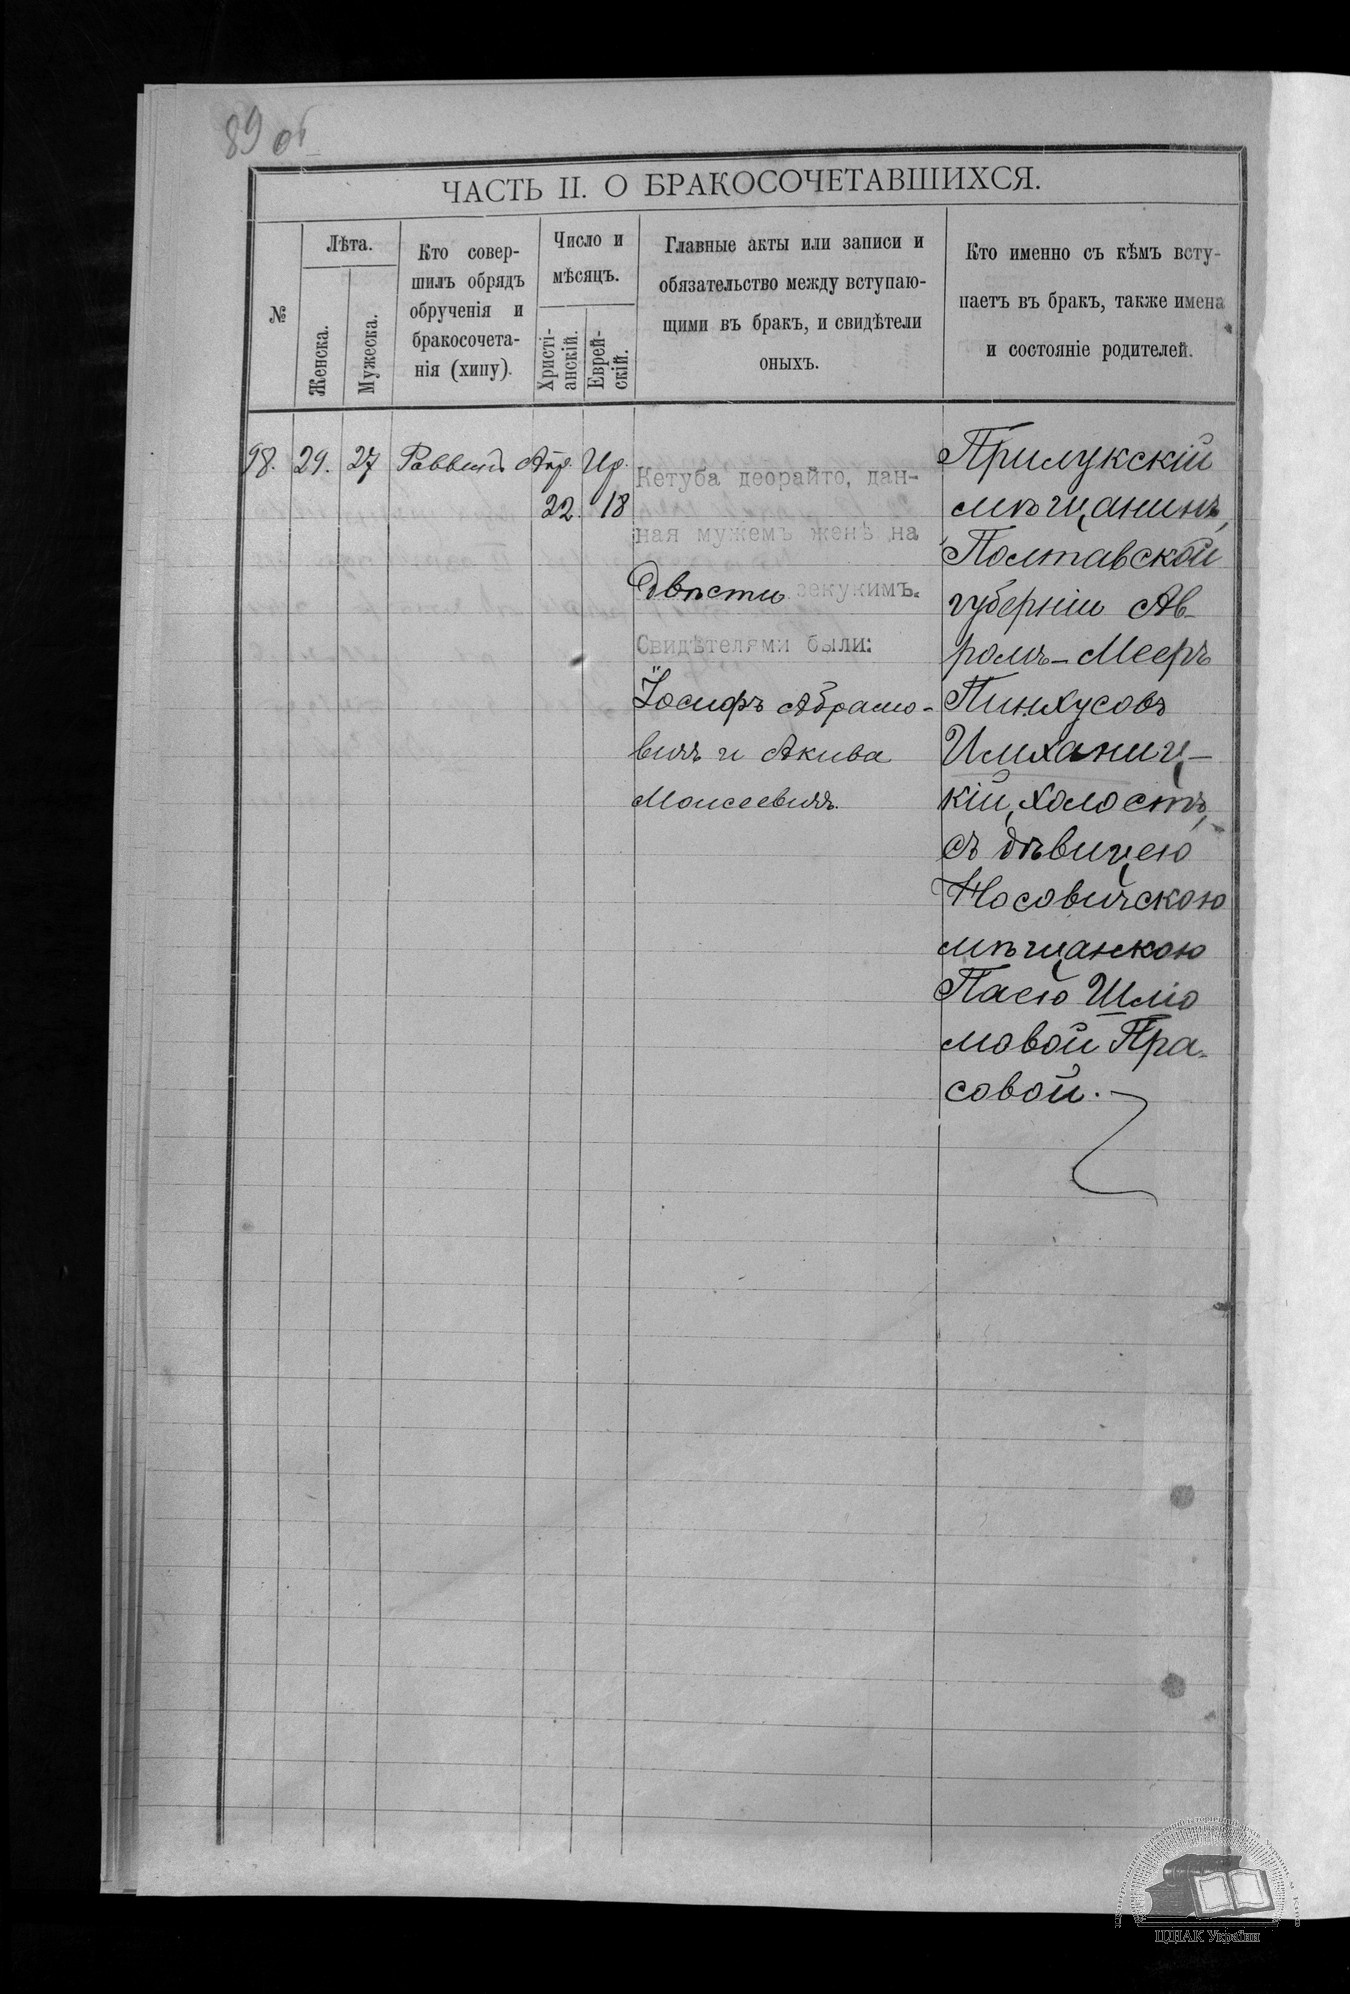 89 об
ЧАСТЬ II. О БРАКОСОЧЕТАВШИХСЯ.
№
Лѣта.
Женска.
Мужеска.
Кто совер-
шилъ обрядъ
обрученія и
бракосочета-
нія (хупу).
Число и
мѣсяцъ.
Христі-
анскій.
Еврей-
скій.
Главные акты или записи и
обязательство между вступаю-
щими въ бракъ, и свидѣтели
оныхъ.
Кто именно съ кѣмъ всту-
паетъ въ бракъ, также имена
и состояніе родителей.
98. 29. 27 Раввинъ Апр. Ир.
22. 18
Кетуба деорайто, дан-
ная мужемъ женѣ на
двѣсти зекукимъ.
Свидѣтелями были:
Іосифъ Абрамо-
вичъ и Акива
Моисеевичъ.
Прилукскій
мѣщанинъ,
Полтавской
губерніи Ав-
ромъ-Мееръ
Пинхусовъ
Имханиц-
кій, холостъ,
съ дѣвицею
Носовичскою
мѣщанкою
Пасею Шліо
мовой Пра-
совой.
ЦДІАК України